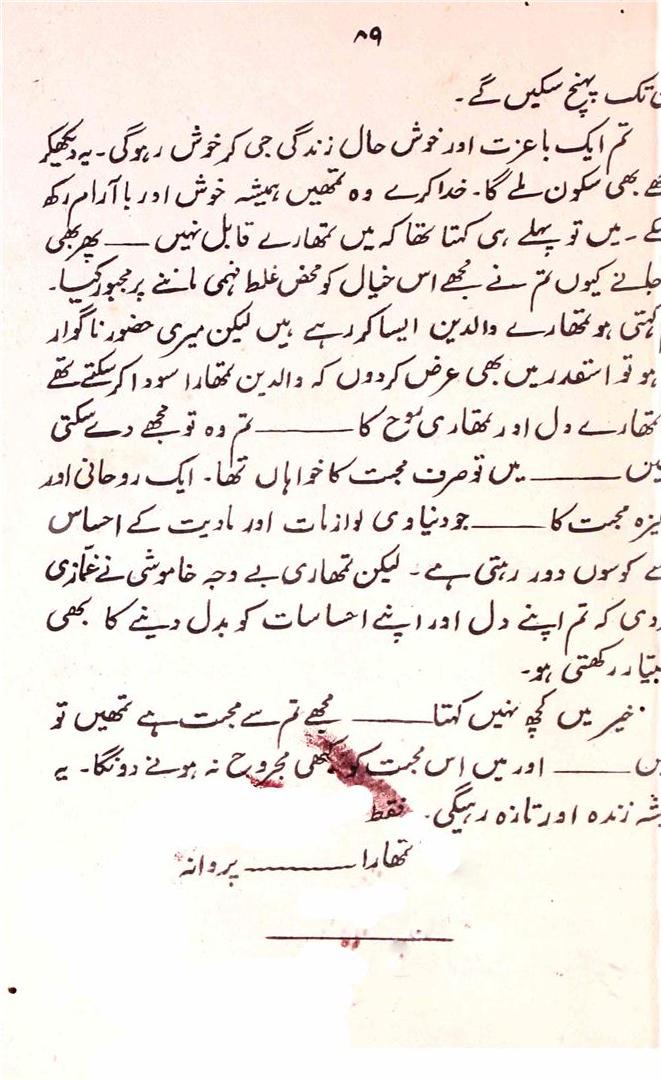 ۸۹
تک پہنچ سکیں گے۔
تم ایک باعزت اور خوش حال زندگی جی کر خوش رہوگی۔ یہ دیکھکر
بھی سکون ملے گا۔ خدا کرے وہ تمھیں ہمیشہ خوش اور باآرام رکھ
۔ میں تو پہلے ہی کہتا تھا کہ میں تمھارے قابل نہیں ــــ پھر بھی
جانے کیوں تم نے مجھے اس خیال کو محض غلط فہمی ماننے پر مجبور کیا۔
کہتی ہو تمھارے والدین ایسا کر رہے ہیں لیکن میری حضور ناگوار
ہو تو اسقدر میں بھی عرض کردوں کہ والدین تمھارا سودا کر سکتے تھے
تمھارے دل اور تمھاری روح کا ــــــــ تم وہ تو مجھے دے سکتی
ــــــــ میں تو صرف محبت کا خواہاں تھا۔ ایک روحانی اور
محبت کا ــــــــ جو دنیاوی لوازمات اور مادیت کے احساس
سے کوسوں دور رہتی ہے۔ لیکن تمھاری بے وجہ خاموشی نے غمّازی
کہ تم اپنے دل اور اپنے احساسات کو بدل دینے کا بھی
رکھتی ہو۔
خیر میں کچھ نہیں کہتا ــــــــ مجھے تم سے محبت ہے تمھیں تو
ــــــــ اور میں اس محبت کو کبھی مجروح نہ ہونے دونگا۔ یہ
زندہ اور تازہ رہیگی۔ فقط
تمھارا ــــــــ پروانہ